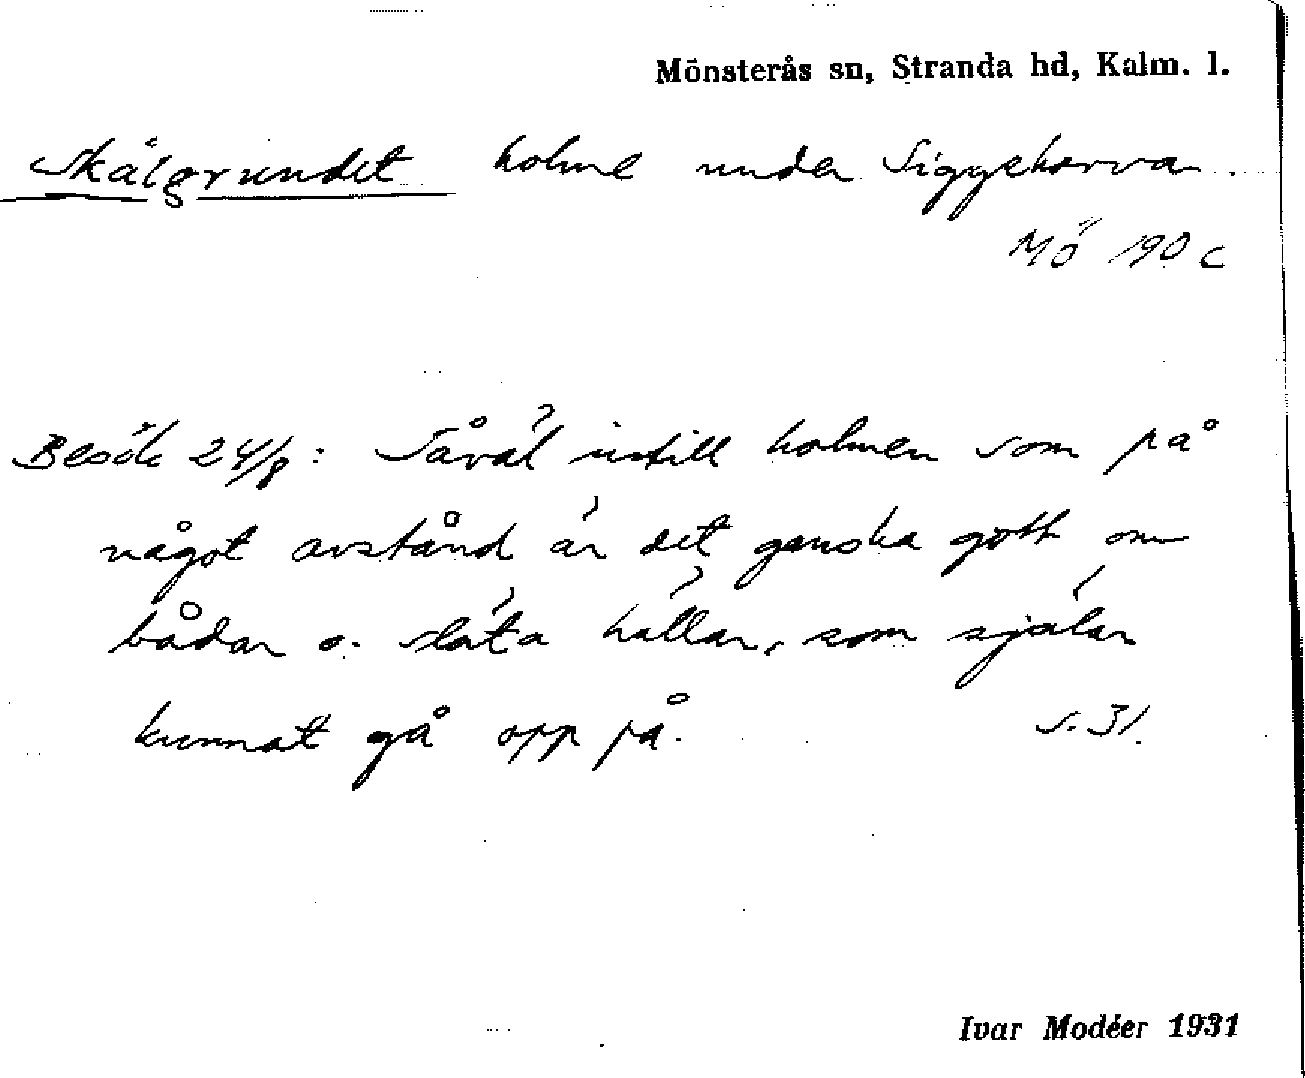 Mönsterås sn, Stranda hd, Kalm. l.
Skälgrundet holme under Siggehorva.
Mö 190 c
Besök 24/8: Såväl intill holmen som på
något avstånd är det ganska gott om
bådar o. släta hällar, som själar
kunnat gå opp på. s. 31.
Ivar Modéer 1931